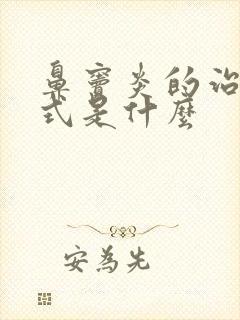 鼻窦炎的治
式是什麼
安為先